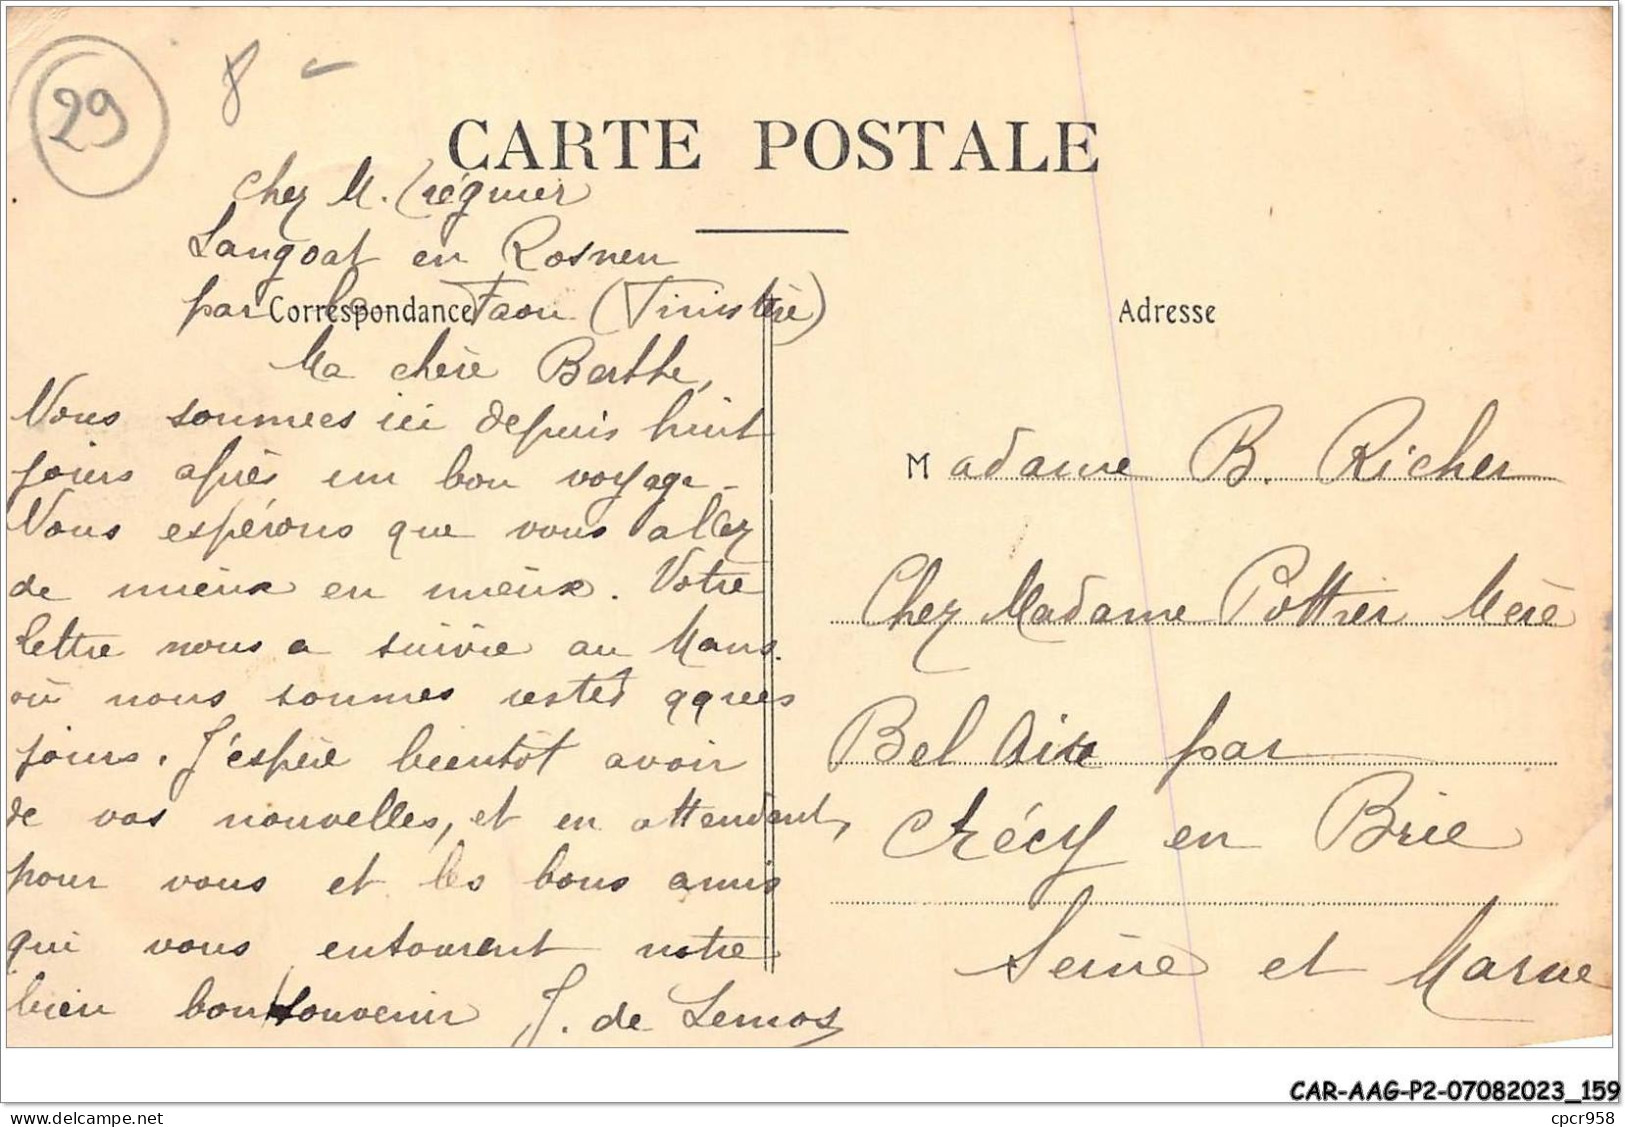 29
8 -
CARTE POSTALE
chez M. Crégnier
Langoat en Rosnen
par Le Faou (Finistère)
Correspondance
Ma chère Berthe,
Nous sommes ici depuis huit
jours après un bon voyage -
Nous espérons que vous allez
de mieux en mieux. Votre
lettre nous a suivie au Mans
où nous sommes restés qques
jours. J'espère bientôt avoir
de vos nouvelles, et en attendant,
pour vous et les bons amis
qui vous entourent notre
bien bon souvenir J. de Lemos
Adresse
Madame B. Richer
Chez Madame Pottier Mère
Bel Air par
Crécy en Brie
Seine et Marne
CAR-AAG-P2-07082023_159
www.delcampe.net
cpcr958